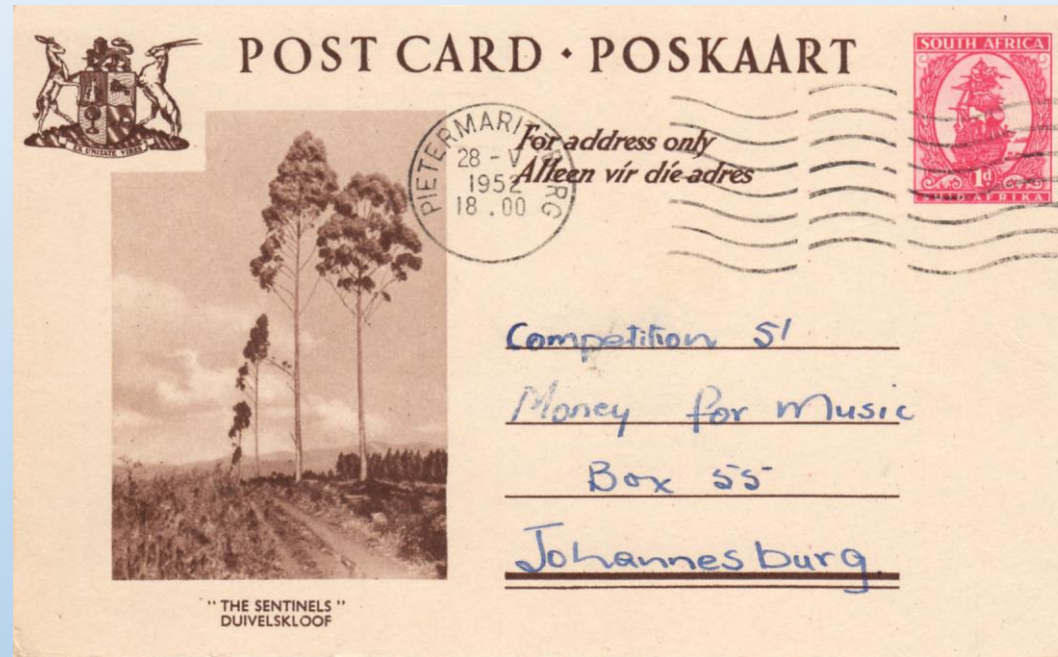 POST CARD · POSKAART
EX UNITATE VIRES
SOUTH AFRICA
1d
SUID-AFRIKA
PIETERMARITZBURG
28 - V
1952
18 . 00
For address only
Alleen vir die adres
Competition 51
Money for Music
Box 55
Johannesburg
" THE SENTINELS "
DUIVELSKLOOF